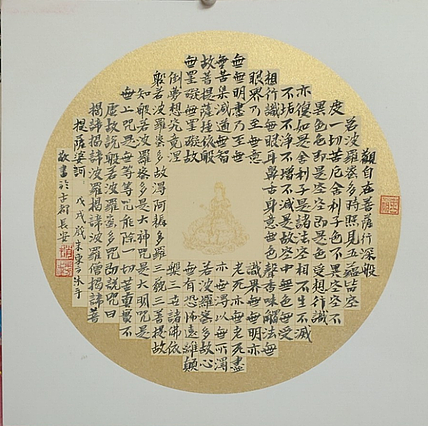 觀自在菩薩行深般
若波羅蜜多時照見五蘊皆空
度一切苦厄舍利子色不異空空不
異色色即是空空即是色受想行識
亦復如是舍利子是諸法空相不生不滅
不垢不淨不增不減是故空中無色無受
想行識無眼耳鼻舌身意無色聲香味觸法無
眼界乃至無意識界無無明亦
無無明盡乃至無老死亦無老死盡
無苦集滅道無智亦無得以無所得
故菩提薩埵依般若波羅蜜多故心
無罣礙無罣礙故無有恐怖遠離顛
倒夢想究竟涅槃三世諸佛依
般若波羅蜜多故得阿耨多羅三藐三菩提故
知般若波羅蜜多是大神咒是大明咒是
無上咒是無等等咒能除一切苦真實不
虛故說般若波羅蜜多咒即說咒曰
揭諦揭諦波羅揭諦波羅僧揭諦菩
提薩婆訶 戊戌歲末東
敬書於古都長安